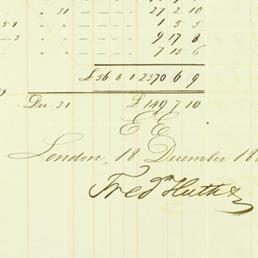 " 31 27 2 10
1 5 5
9 17 8
7 15 6
£56 8 1 2370 6 9
De. 31 £149 7 10
E E
London, 18 December 18
Fredk Huth &